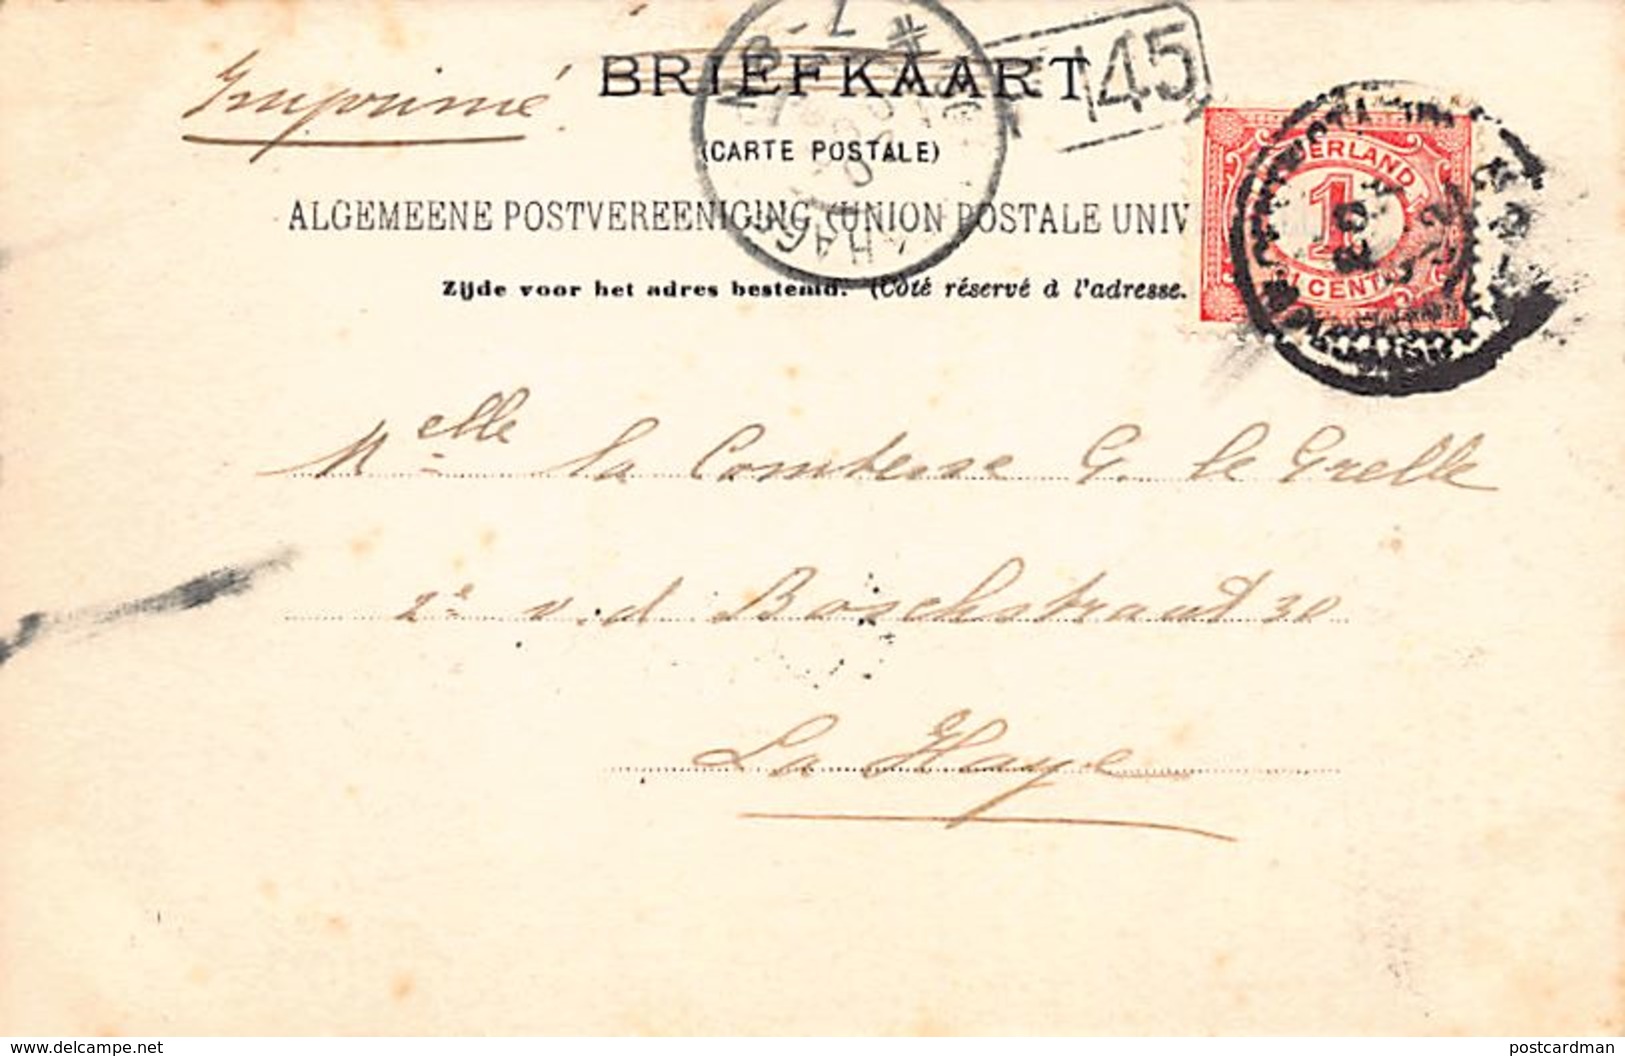 Imprimé
BRIEFKAART
145
(CARTE POSTALE)
ALGEMEENE POSTVEREENIGING (UNION POSTALE UNIV
Zijde voor het adres bestemd. (Côté réservé à l'adresse.
1
CENT
Melle la Comtesse G. le Grelle
2e v. d Boschstraat 30
La Haye
www.delcampe.net
postcardman